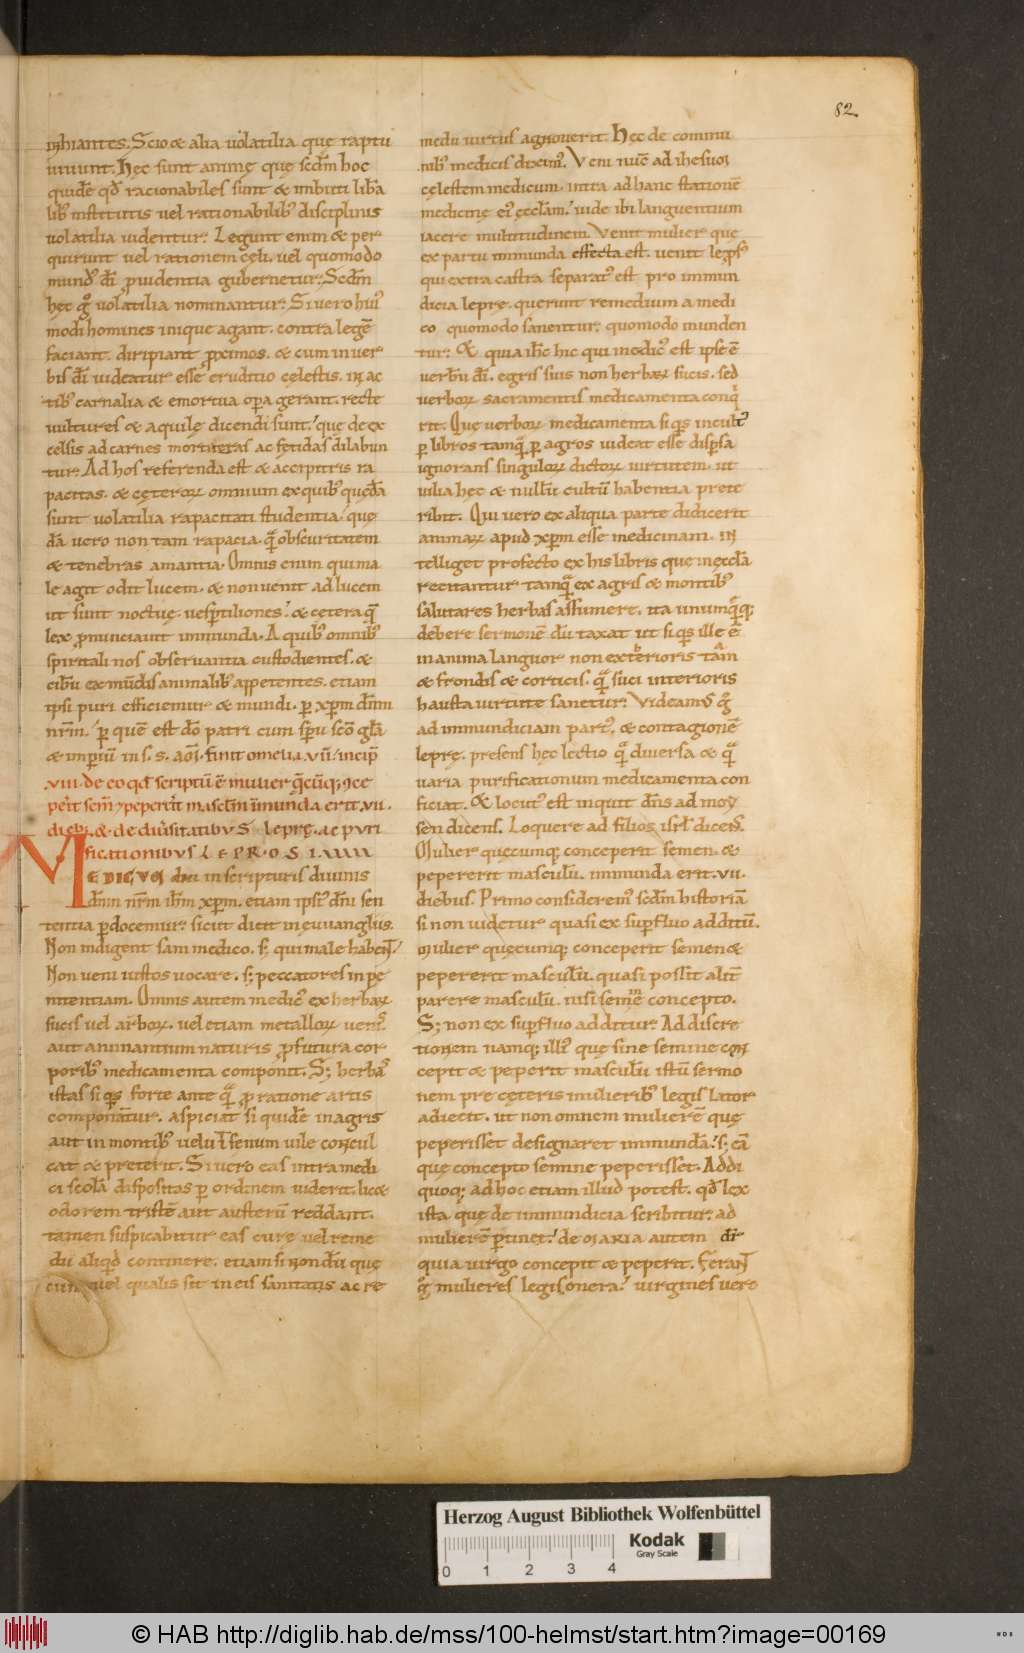 82
inhiantes. Scio & alia uolatilia quę raptu
uiuunt. Hęc sunt animę quę scdm̄ hoc
quidē qd̄ racionabiles sunt & imbuti libͥa
lib᷒ institutis uel rationabilib᷒ disciplinis
uolatilia uidentur. Legunt enim & per
quirunt uel rationem cęli, uel quomodo
mund᷒ dī ꝓuidentia gubernetur. Scdm̄
hęc gͦ uolatilia nominantur. Si uero hui᷒
modi homines inique agant. contra legē
faciant. diripiant ꝓximos. & cum in uer
bis dī uideatur esse eruditio cęlestis. in ac
tib᷒ carnalia & emortua oꝑa gerant. recte
uultures & aquilę dicendi sunt. que de ex
celsis ad carnes morticinas ac fetidas dilabun
tur. Ad hos referenda est & accipitris ra
pacitas. & cęteroꝝ omnium ex quib᷒ quędā
sunt uolatilia rapacitati studentia. quę
dā uero non tam rapacia. qᷓ obscuritatem
& tenebras amantia. Omnis enim qui ma
le agit odit lucem. & non uenit ad lucem
ut sunt noctuę. uesꝑtiliones. & cetera quę̄
lex ꝓnunciauit immunda. A quib᷒ omnib᷒
spiritali nos obseruantia custodientes. &
cibū ex mūdis animalib᷒ appetentes. etiam
ipsi puri efficiemur & mundi. ꝑ xp̄m dn̄m
nr̄m. ꝑ quē est dō patri cum spū scō glā
& imꝑiū in s. s. am̄. finit omelia. vii. incip̄
viii. de eo qd̄ scriptū ē mulier q̄cūq; ꝯce
perit sem̄ & pepererit masclm̄ immunda erit. vii.
dieb;. &. de diuͥsitatibus leprę. ac puri
ficationibus LEPROSI.
MEDICUM dici in scripturis diuinis
dn̄m nr̄m ihm̄ xp̄m. etiam ipsi᷒ dn̄i sen
tentia ꝑdocemur. sicut dicit in euuangliis.
Non indigent sani medico. s; qui male habent.
Non ueni iustos uocare. s; peccatores in pę
nitentiam. Omnis autem medic᷒ ex herbaꝝ
sucis uel arboꝝ. uel etiam metalloꝝ uenis.
aut animantium naturis ꝓfutura cor
porib᷒ medicamenta componit. S; herbas
istas si qis forte ante qᷓ ꝓ ratione artis
componātur. aspiciat si quidē in agris
aut in montib᷒ uelut fenum uile concul
cat & preterit. Si uero eas intra medi
ci scolā dispositas ꝑ ordinem uiderit. lic&
odorem tristē aut austerū reddant.
tamen suspicabitur eas curę uel reme
dii aliqid continere. etiam si nondū quę
cūq; uel qualis sit in eis sanitatis ac re
medii uirtus agnouerit. Hęc de commu
nib᷒ medicis dixim᷒. Veni nūc ad ihesum
cęlestem medicum. intra ad hanc stationē
medicinę ei᷒ ęcclam̄. uide ibi languentium
iacere multitudinem. Venit mulier que
ex partu immunda effecta est. uenit lepros᷒
qui extra castra separat᷒ est pro immun
dicia lepre. querunt remedium a medi
co quomodo sanentur. quomodo munden
tur. & quia ihc̄ hic qui medic᷒ est ipse ē
uerbū dī. egris suis non herbaꝝ sucis. sed
uerboꝝ sacramentis medicamenta conqͥ
rit. Quę uerboꝝ medicamenta si qis incult᷒
ꝑ libros tamqᷓ ꝑ agros uideat esse disꝑsa
ignorans singuloꝝ dictoꝝ uirtutem. ut
uilia hęc & nullū cultū habentia prete
ribit. Qui uero ex aliqua parte didicerit
animaꝝ apud xp̄m esse medicinam. in
telliget profecto ex his libris que in ęcclā
recitantur tamqᷓ ex agris & montib᷒
salutares herbas assumere. ita unumqᷓq;
debere sermonē dū taxat ut si qis ille ē
in anima languor non exterioris tām
& frondis & corticis. qᷓ suci interioris
hausta uirtute sanetur. Videam᷒ gͦ
ad immundiciam part᷒. & contagionē
leprę. presens hęc lectio qᷓ diuersa & qᷓ
uaria purificationum medicamenta con
ficiat. & locut᷒ est inquit dn̄s ad moy
sen dicens. Loquere ad filios isrl̄ dicens.
Mulier quęcumq; conceperit semen. &
pepererit masculū. immunda erit. vii.
diebus. Primo considerem᷒ scdm̄ historiā
si non uidetur quasi ex suꝑfluo additū.
mulier quęcumq; conceperit semen &
pepererit masculū. quasi possit alit̄
parere masculū. nisi semine concepto.
S; non ex suꝑfluo additur. Ad discre
tionem namq; illi᷒ quę sine semine con
cepit & peperit masculū istū sermo
nem pre cęteris mulierib᷒ legislator
adiecit. ut non omnem mulierē quę
peperisset designaret immundā. s; eā
quę concepto semine peperisset. Addi
quoq; ad hoc etiam illud potest. qd̄ lex
ista quę de immundicia scribitur. ad
mulierē ꝑtinet. de MARIA autem dr̄
quia uirgo concepit & peperit. Ferant
gͦ mulieres legis onera. uirgines uero
Herzog August Bibliothek Wolfenbüttel
Kodak
Gray Scale
0 1 2 3 4
© HAB http://diglib.hab.de/mss/100-helmst/start.htm?image=00169